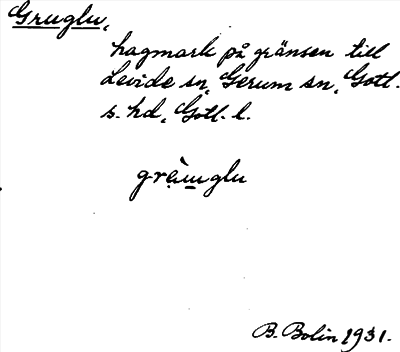 Gruglu,
hagmark på gränsen till
Levide sn, Gerum sn, Gotl.
s. hd, Gotl. l.
B. Bolin 1931.